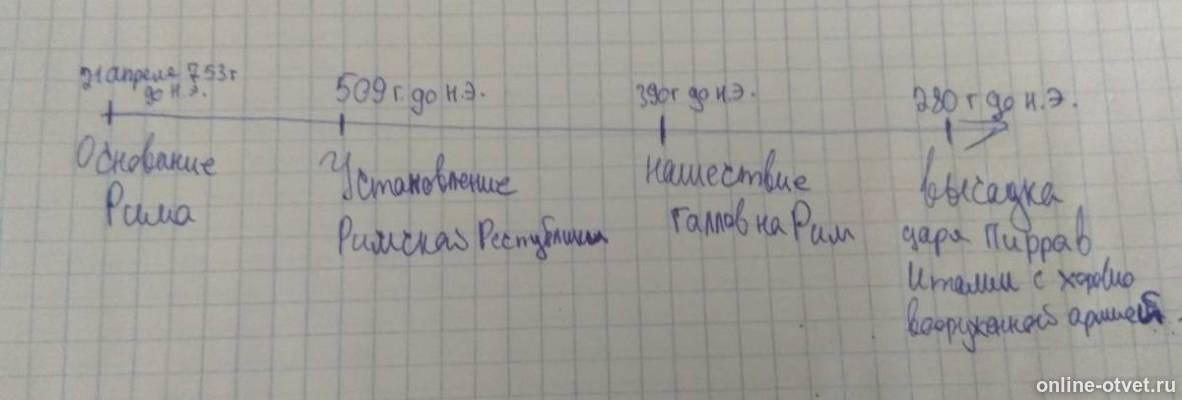 21 апреля 753 г
до н.э.
509 г. до н.э.
390 г до н.э.
280 г до н.э.
Основание
Рима
Установление
Римской Республики
нашествие
галлов на Рим
высадка
царя Пирра в
Италии с хорошо
вооруженной армией
online-otvet.ru